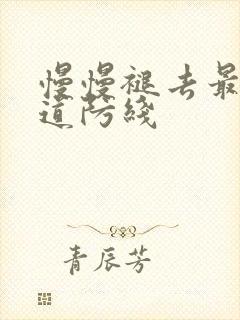 慢慢褪去最
道防线
青辰芳